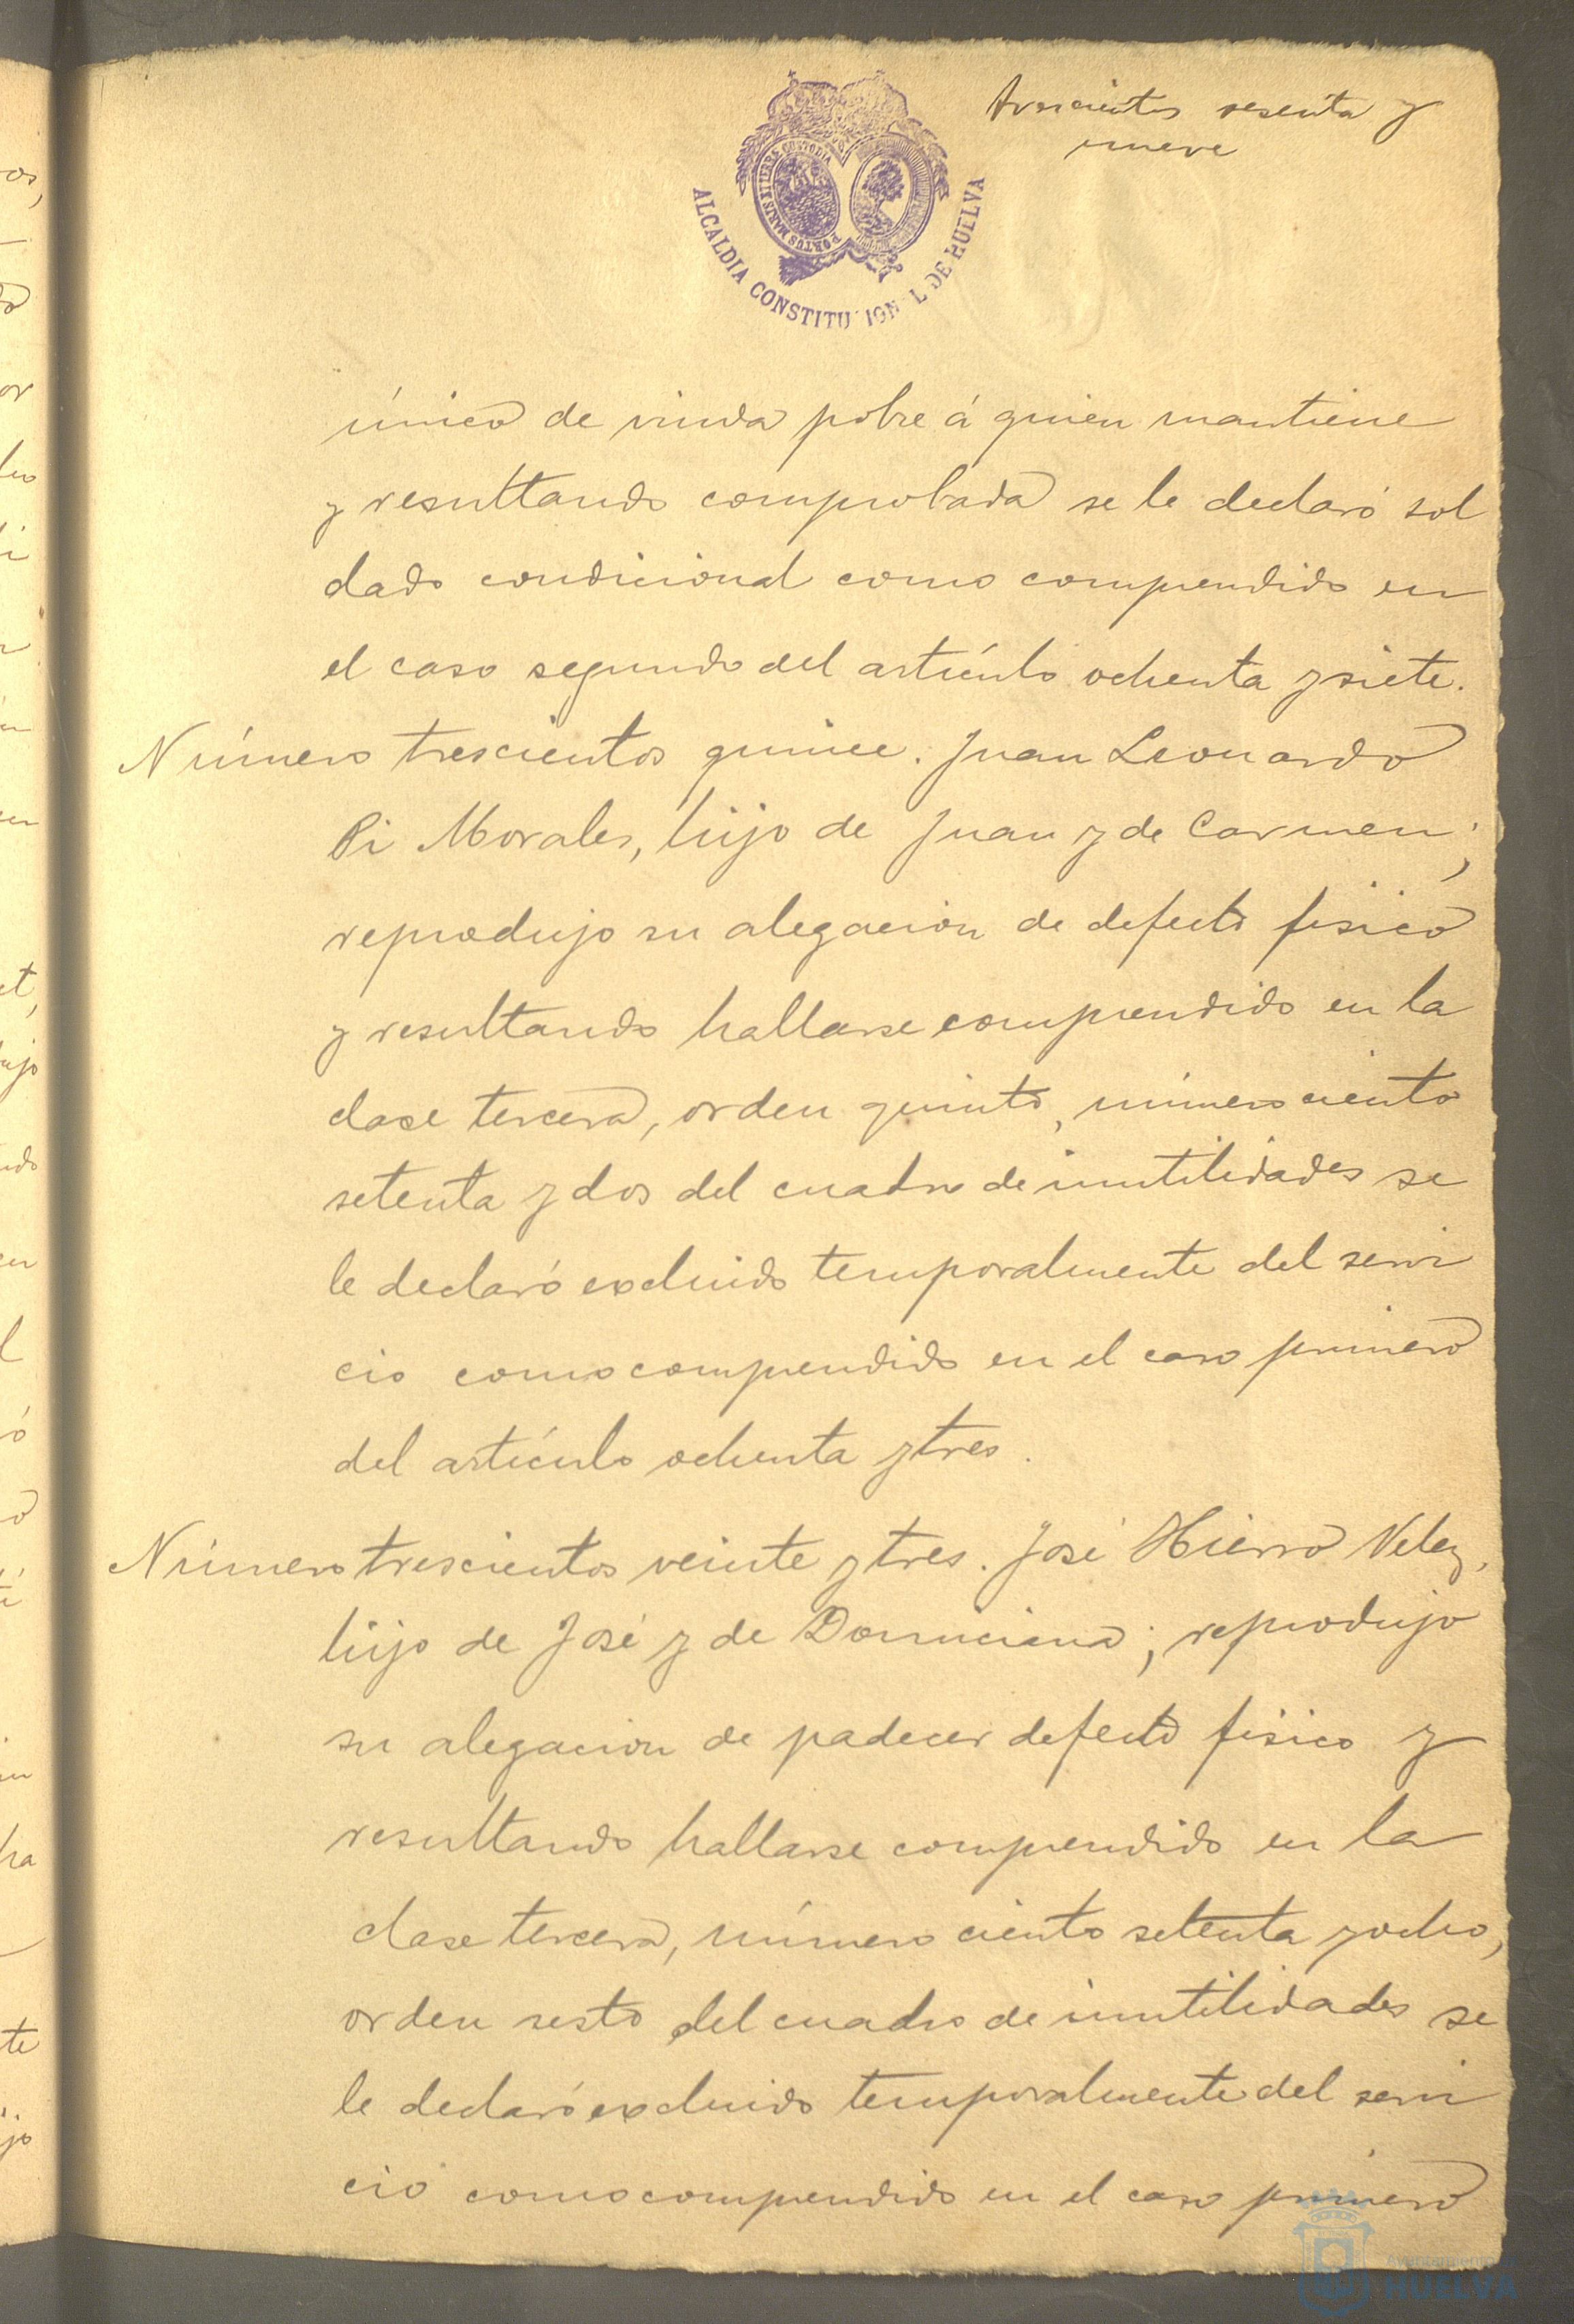 trescientos sesenta y
nueve
PORTUS MARIS ET TERRE CUSTODIA
ALCALDIA CONSTITU ION L DE HUELVA
único de viuda pobre á quien mantiene
y resultando comprobada se le declaró sol
dado condicional como comprendido en
el caso segundo del artículo ochenta y siete.
Número trescientos quince. Juan Leonardo
Pi Morales, hijo de Juan y de Carmen;
reprodujo su alegacion de defecto fisico
y resultando hallarse comprendido en la
clase tercera, orden quinto, número ciento
setenta y dos del cuadro de inutilidades se
le declaró excluido temporalmente del servi
cio como comprendido en el caso primero
del artículo ochenta y tres.
Número trescientos veinte y tres. José Hierro Velez,
hijo de José y de Domiciana; reprodujo
su alegacion de padecer defecto fisico y
resultando hallarse comprendido en la
clase tercera, número ciento setenta y ocho,
orden sesto del cuadro de inutilidades se
le declaró excluido temporalmente del servi
cio como comprendido en el caso primero
Ayuntamiento de
HUELVA